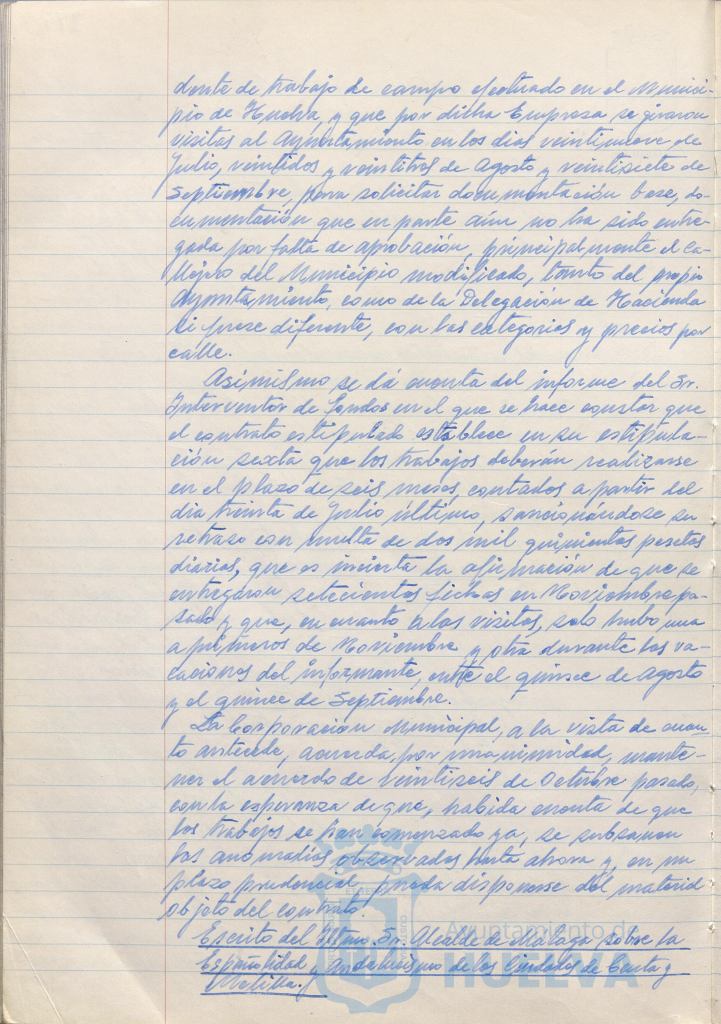 dente de trabajo de campo efectuado en el Munici-
pio de Huelva, y que por dicha Empresa se giraron
visitas al Ayuntamiento en los dias veintinueve de
Julio, veintidos y veintitres de Agosto y veintisiete de
Septiembre, para solicitar documentación base, do-
cumentación que en parte aún no ha sido entre-
gada por falta de aprobación, principalmente el Ca-
llejero del Municipio modificado, tanto del propio
Ayuntamiento, como de la Delegación de Hacienda
si fuese diferente, con las categorias y precios por
calle.
Asimismo se dá cuenta del informe del Sr.
Interventor de Fondos en el que se hace constar que
el contrato estipulado establece en su estipula-
ción sexta que los trabajos deberán realizarse
en el plazo de seis meses, contados a partir del
dia treinta de Julio último, sancionándose su
retraso con multa de dos mil quinientas pesetas
diarias, que es incierta la afirmación de que se
entregaron setecientas fichas en Noviembre pa-
sado y que, en cuanto a las visitas, solo hubo una
a primeros de Noviembre y otra durante las va-
caciones del informante, entre el quince de Agosto
y el quince de Septiembre.
La Corporación Municipal, a la vista de cuan-
to antecede, acuerda, por unanimidad, mante-
ner el acuerdo de veintiseis de Octubre pasado,
con la esperanza de que, habida cuenta de que
los trabajos se han comenzado ya, se subsanen
las anomalías observadas hasta ahora y, en un
plazo prudencial, pueda disponerse del material
objeto del contrato.
Escrito del Iltmo. Sr. Alcalde de Málaga sobre la
Españolidad y Andalucismo de las Ciudades de Ceuta y
Melilla.
Ayuntamiento de
HUELVA